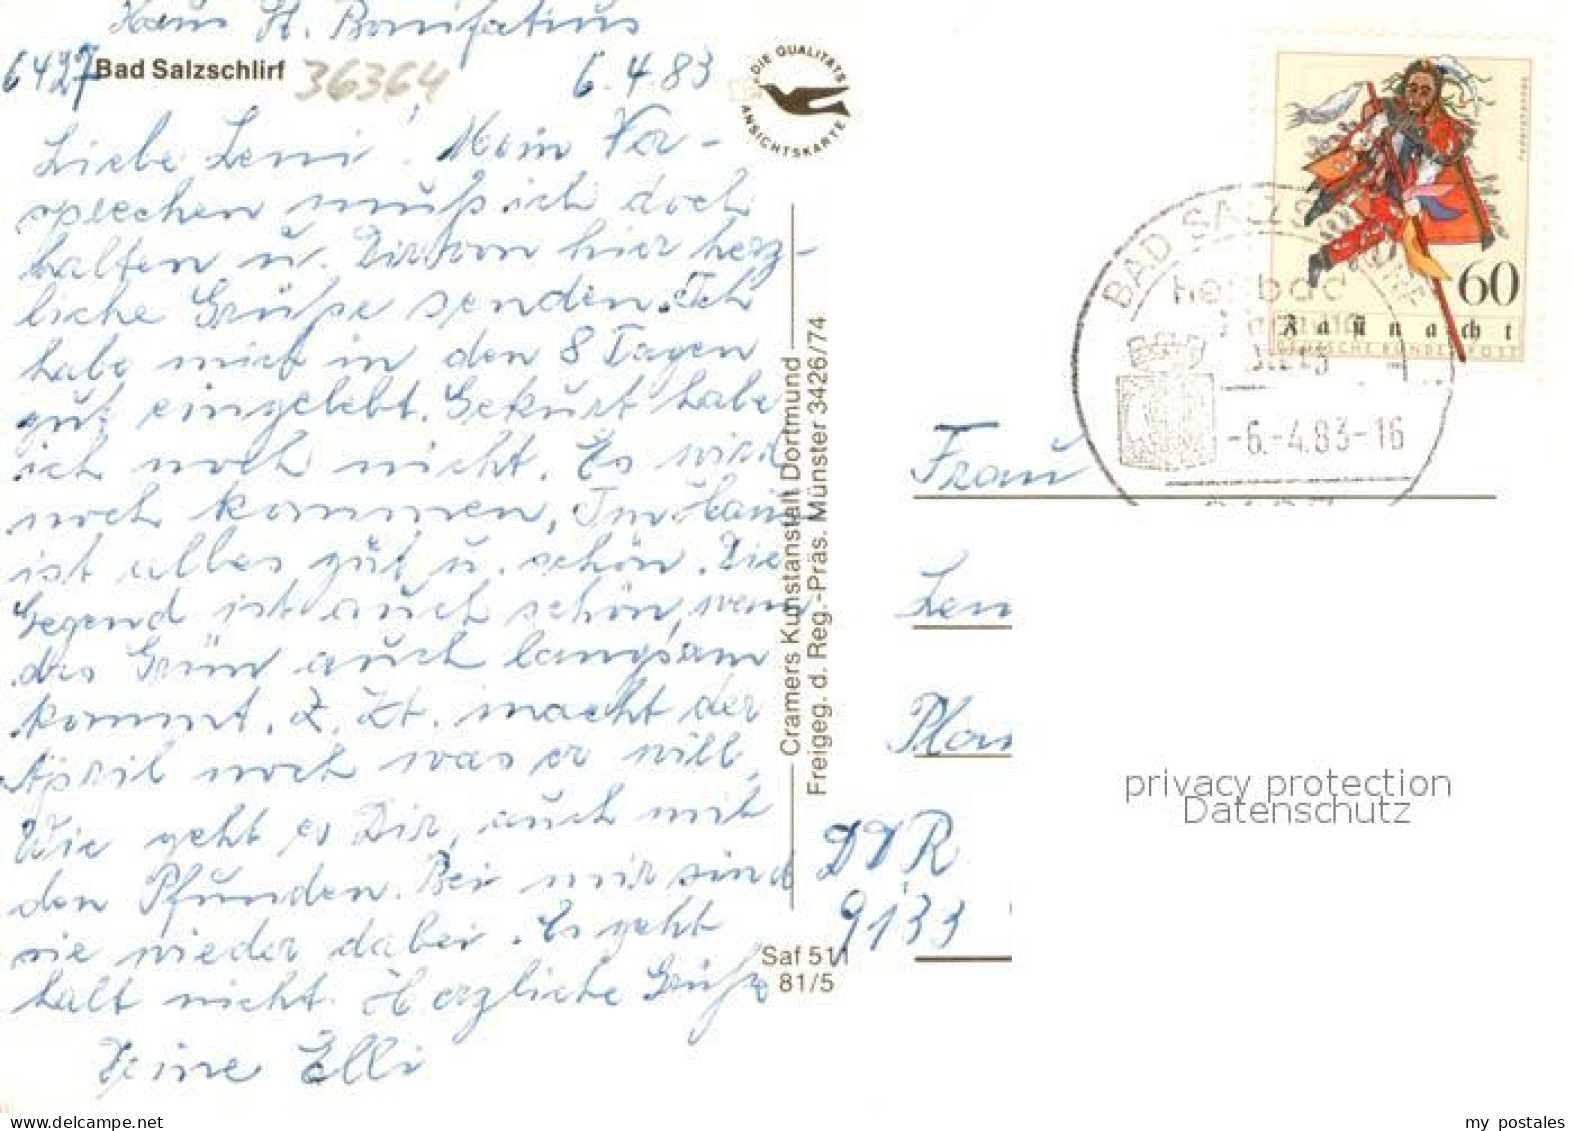 Haus St. Bonifatius
6427 Bad Salzschlirf 36364
6.4.83
DIE QUALITÄTS
ANSICHTSKARTE
Liebe Leni! Mein Ver-
sprechen muß ich doch
halten u. Dir von hier herz-
liche Grüße senden. Ich
habe mich in den 8 Tagen
gut eingelebt. Gekurt habe
ich noch nicht. Es wird
noch kommen, Im Haus
ist alles gut u. schön. Die
Gegend ist auch schön, wenn
das Grün auch langsam
kommt. Z. Zt. macht der
April noch was er will,
Wie geht es Dir, auch mit
den Pfunden. Bei mir sind
sie wieder dabei. Es geht
halt nicht. Herzliche Grüße
Deine Elli
Cramers Kunstanstalt Dortmund
Freigeg. d. Reg.-Präs. Münster 3426/74
Saf 511
81/5
Federahannes
60
Fastnacht
DEUTSCHE BUNDESPOST
BAD SALZSCHLIRF
Heilbad
-6.-4.83-16
Frau
DDR
9133
privacy protection
Datenschutz
my postales